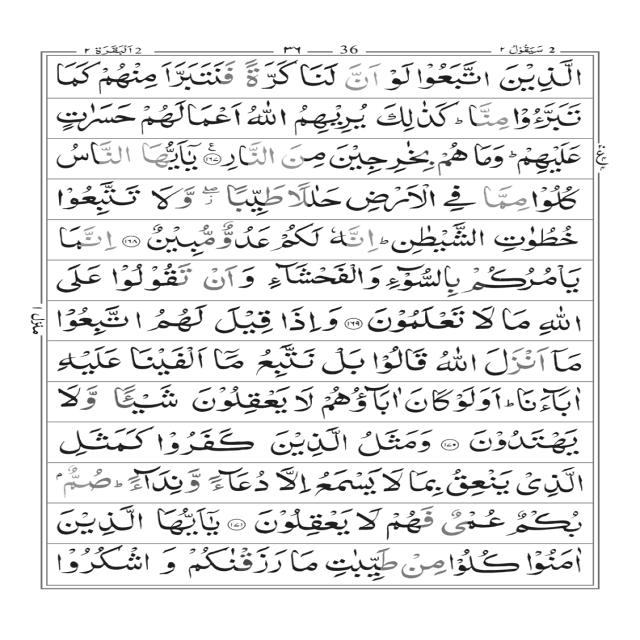 ٢ اَلْبَقَرَة 2 ٣٦ 36 ٢ سَيَقُوْلُ 2
الَّذِيْنَ اتَّبَعُوْا لَوْ اَنَّ لَنَا كَرَّةً فَنَتَبَرَّاَ مِنْهُمْ كَمَا
تَبَرَّءُوْا مِنَّا ؕ كَذٰلِكَ يُرِيْهِمُ اللّٰهُ اَعْمَالَهُمْ حَسَرٰتٍ
عَلَيْهِمْ ؕ وَمَا هُمْ بِخٰرِجِيْنَ مِنَ النَّارِ ۧ ﴿١٦٧﴾ يٰۤاَيُّهَا النَّاسُ
كُلُوْا مِمَّا فِي الْاَرْضِ حَلٰلًا طَيِّبًا ۖ وَّلَا تَتَّبِعُوْا
خُطُوٰتِ الشَّيْطٰنِ ؕ اِنَّهٗ لَكُمْ عَدُوٌّ مُّبِيْنٌ ﴿١٦٨﴾ اِنَّمَا
يَاْمُرُكُمْ بِالسُّوْٓءِ وَالْفَحْشَآءِ وَاَنْ تَقُوْلُوْا عَلَى
اللّٰهِ مَا لَا تَعْلَمُوْنَ ﴿١٦٩﴾ وَاِذَا قِيْلَ لَهُمُ اتَّبِعُوْا
مَاۤ اَنْزَلَ اللّٰهُ قَالُوْا بَلْ نَتَّبِعُ مَاۤ اَلْفَيْنَا عَلَيْهِ
اٰبَآءَنَا ؕ اَوَلَوْ كَانَ اٰبَآؤُهُمْ لَا يَعْقِلُوْنَ شَيْـًٔا وَّلَا
يَهْتَدُوْنَ ﴿١٧٠﴾ وَمَثَلُ الَّذِيْنَ كَفَرُوْا كَمَثَلِ
الَّذِيْ يَنْعِقُ بِمَا لَا يَسْمَعُ اِلَّا دُعَآءً وَّنِدَآءً ؕ صُمٌّۢ
بُكْمٌ عُمْيٌ فَهُمْ لَا يَعْقِلُوْنَ ﴿١٧١﴾ يٰۤاَيُّهَا الَّذِيْنَ
اٰمَنُوْا كُلُوْا مِنْ طَيِّبٰتِ مَا رَزَقْنٰكُمْ وَ اشْكُرُوْا
منزل ١